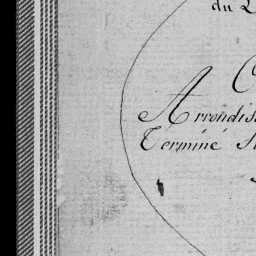 du
Arrondis
Terminé